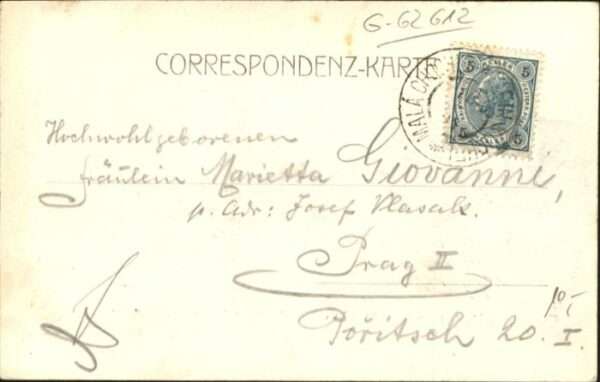 G-62612
CORRESPONDENZ-KARTE
5 5
MALÁ
5 5
Hochwohlgeborenen
Fräulein Marietta Giovanni,
p. Adr: Josef Vlasak.
Prag II
10,-
Pořitsch 20. I.